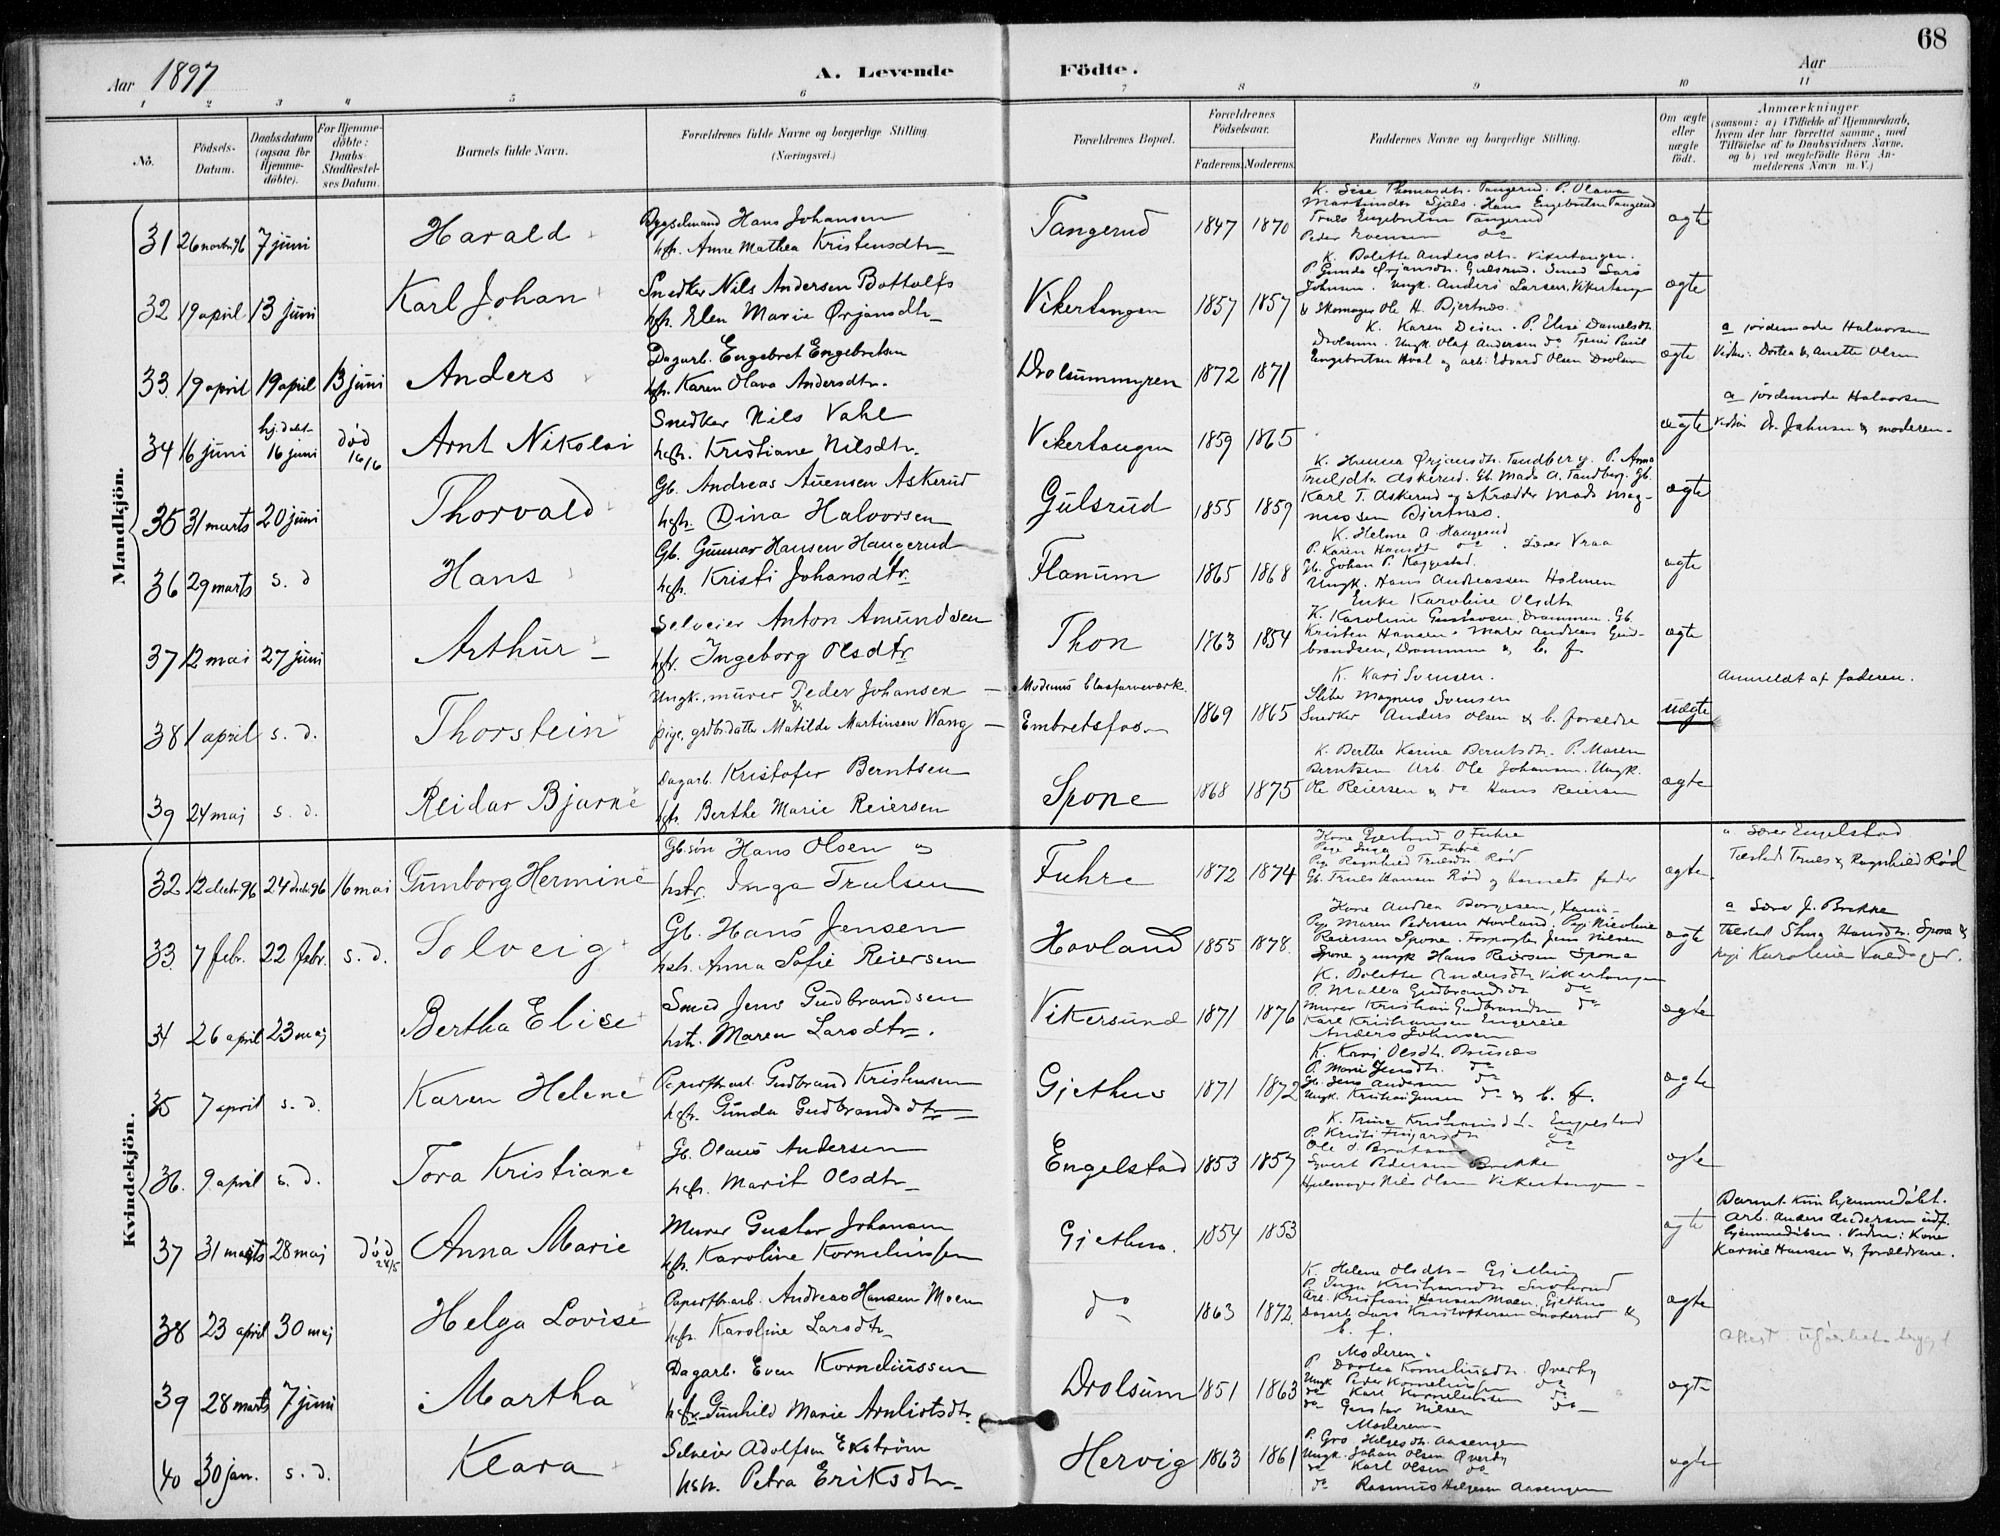 68
Aar 1897
A. Levende Födte.
Aar
1 2 3 4 5 6 7 8 9 10 11
No.
Födsels-
Datum.
Daabsdatum
(ogsaa for
Hjemme-
döbte).
For Hjemme-
döbte:
Daabs-
Stadfæstel-
ses Datum.
Barnets fulde Navn.
Forældrenes fulde Navne og borgerlige Stilling
(Næringsvei.)
Forældrenes Bopæl.
Forældrenes
Födselsaar.
Faderens. Moderens.
Faddernes Navne og borgerlige Stilling.
Om ægte
eller
uægte
födt.
Anmærkninger
(saasom: a) i Tilfælde af Hjemmedaab,
hvem der har forrettet samme, med
Tilföielse af to Daabsvidners Navne,
og b) ved uægtefödte Börn An-
melderens Navn m. V.)
Mandkjön.
31 26 novbr 96 7 juni Harald
Hans Johansen
hstr. Anne Mathea Kristensdtr
Tangerud 1847 1870 ægte
Truls Engebretsen Tangerud
Peder Evensen do
32 19 april 13 juni Karl Johan
Snedker Nils Andersen Bottolfs
hstr. Elen Marie Ørjansdtr
Vikertangen 1857 1857 ægte
K. Bolette Andersdtr. Vikertangen.
P. Gunda Ørjansdtr. Gulsrud. Smed Lars
Johnsen. Ungk. Anders Larsen, Vikertangen
& Skomager Ole H. Bjertnæs.
33. 19 april 19 april 13 juni Anders
Dagarb. Engebret Engebretsen
hstr. Karen Olava Andersdtr.
Drolsummyren 1872 1871 ægte
P. Elise Danielsdtr
Drolsum. Ungk. Olaf Andersen do
Engebretsen Hval og arb. Edvard Olsen Drolsum
a jordemode Halvorsen
Vidner: Dortea & Anette Olsen
34 16 juni hj. døbt 16 juni død 16/6 Arnt Nikolai
Snedker Nils Vahl
hstr. Kristiane Nilsdtr.
Vikertangen 1859 1865 ægte
a jordemode Halvorsen
& moderen
35 31 marts 20 juni Thorvald
Gb. Andreas Auensen Askerud
hstr. Dina Halvorsen
Gulsrud 1855 1859 ægte
K. Hanna Ørjansdtr. Tandberg. P. Anna
Trulsdtr Askerud. Gb. Mads A. Tandberg. Gb.
Karl T. Askerud og skrædder Mads Mag-
nussen Bjertnæs.
36 29 marts s. d Hans
Gb. Gunnar Hansen Haugerud
hstr. Kristi Johansdtr.
Flanum 1865 1868 ægte
K. Helene A Haugerud
P. Karen Hansdt do. Lærer Vraa
Gb. Johan P. Kaggestad.
Ungk. Hans Andreassen Holmen
37 12 mai 27 juni Arthur
Selveier Anton Amundsen
hstr. Ingeborg Olsdtr
Thon 1863 1854 ægte
Enke Karoline Olsdtr
K. Karoline Gustavsen, Drammen. Gb.
Kristen Hansen. Maler Andreas Gud-
brandsen, Drammen & b. f.
38 1 april s. d. Thorstein
Ungk. murer Peder Johansen
&
pige, grdbr.datter Matilde Martinsen Wang
Modums blaafarveværk.
Embretsfos
1869 1865 uægte
K. Kari Svensen.
Sliber Magnus Svensen
Snedker Anders Olsen & b. forældre
Anmeldt af faderen.
39 24 maj s. d. Reidar Bjarne
Dagarb. Kristofer Berntsen
hstr. Berthe Marie Reiersen
Spone 1868 1875 ægte
K. Berthe Karine Berntsdtr. P. Maren
Berntsen Arb. Ole Johansen. Ungk.
Ole Reiersen & do Hans Reiersen
Kvindekjön.
32 12 decbr 96 24 decbr 96 16 mai Gunborg Hermine
Gb. søn Hans Olsen og
hstr. Inga Trulsen
Fuhre 1872 1874 ægte
Kone O Fuhre
Pige Inga O Fuhre
Pige Ragnhild Trulsdtr Rød
Gb. Truls Hansen Rød og barnets fader
a. Lærer Engelstad
Truls & Ragnhild Rød
33. 7 febr. 22 febr. s. d. Solveig
Gb. Hans Jensen
hstr. Anna Sofie Reiersen
Hovland 1855 1878. ægte
Kone Andrea Borgesen,
Pige Maren Pedersen Hovland. Pige Nicoline
Reiersen Spone. Jens Nilsen
Spone og ungk Hans Reiersen Spone
a Lærer J. Brekke
Hansdtr. Spone &
pige Karoline
34 26 april 23 maj Bertha Elise
Smed Jens Gudbrandsen
hstr. Maren Larsdtr.
Vikersund 1871 1876 ægte
K. Bolette Andersdtr Vikertangen
P. Malla Gudbrandsdt do
Murer Kristian Gudbrandsen do
Karl Kristiansen
Anders Johnsen
35 7 april s. d. Karen Helene
Papirfbr.arb. Gudbrand Kristensen
hstr. Gunda Gudbrandsdtr
Gjethus 1871 1872 ægte
K. Kari Olsdtr.
P. Marie Jensdtr. do
Gb. Jens Andersen do
Ungk. Kristian Jensen do & b. f.
36. 9. april s. d. Tora Kristiane
Gb. Olaus Andersen
hstr. Marit Olsdtr
Engelstad 1853 1857 ægte
K. Trine Engelstad
P. Kristi do
Ole
Syvert Pedersen Brekke
Hjulmager Nils Olsen Vikertangen
37 31 marts 28 maj død 28/5 Anna Marie
Murer Gustav Johansen
hstr. Karoline Korneliussen
Gjethus. 1854 1853 ægte
Barnet kun hjemmedøbt.
Arb. Anders Andersen udf.
hjemmedåben. Vidner: Kone
Karine Hansen & forældrene.
38 23 april 30 maj Helga Lovise
Papirfbr.arb. Andreas Hansen Moen
hstr. Karoline Larsdtr
do 1863 1872. ægte
K. Helene Olsdtr Gjethus
Arb. Kristian Hansen Moen, Gjethus
Dagarb. Lars Kristoffersen &
b. f.
39 28 marts 7 juni Martha
Dagarb. Even Korneliussen
hstr. Gunhild Marie Arnliotsdtr
Drolsum 1851 1863 ægte
Moderen.
P. Dortea Korneliusdtr. Øverby
Ungk Peder Korneliussen do
do Karl Korneliussen do
do Gustav Nilsen do
40 30 jan. s. d. Klara
Selveier Adolfsen Ekström
hstr. Petra Eriksdtr
Hervig 1863 1861 ægte
Moderen
P. Gro Helgesdtr Aasengen
Ungk. Johan Olsen Øverby
do Karl Olsen do
do Rasmus Helgesen Aasengen